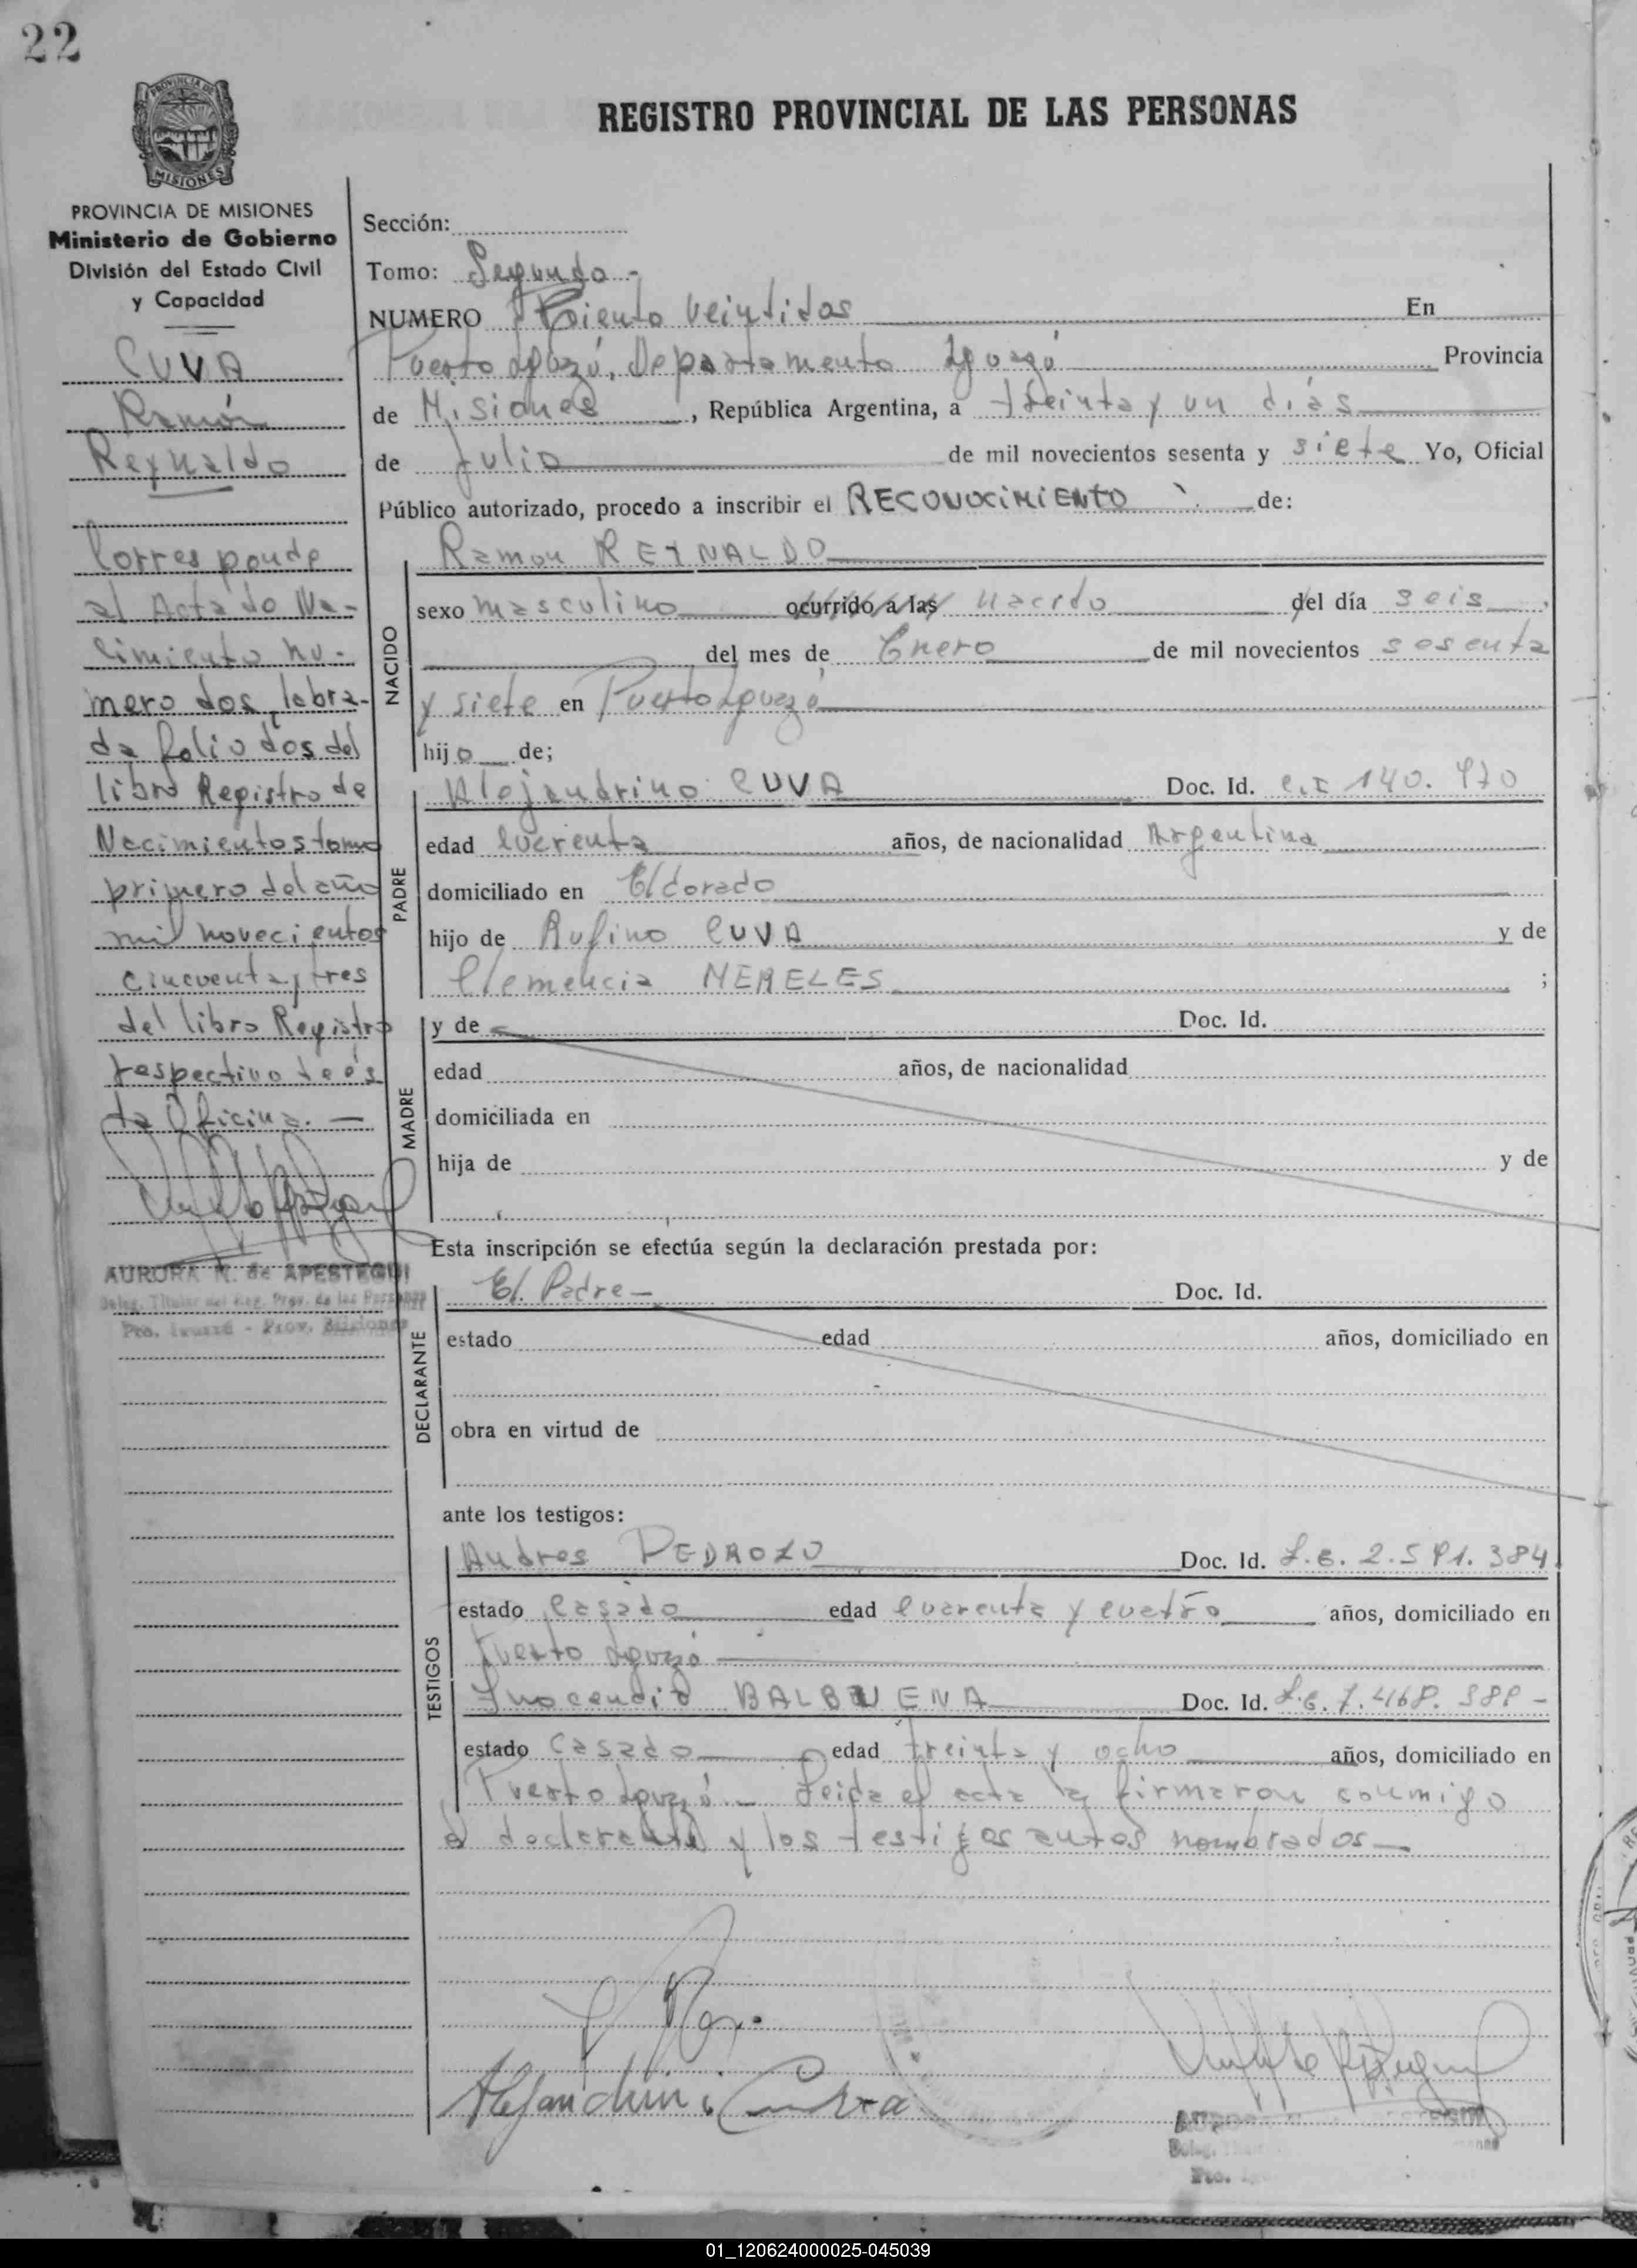 22
PROVINCIA DE
MISIONES
REGISTRO PROVINCIAL DE LAS PERSONAS
PROVINCIA DE MISIONES
Ministerio de Gobierno
División del Estado Civil
y Capacidad
CUVA
Ramón
Reynaldo
Corresponde
al Acta do Na-
cimiento nu-
mero dos, labra-
da folio dos del
libro Registro de
Nacimientos tomo
primero del año
mil novecientos
cincuenta y tres
del libro Registro
respectivo de és
ta Oficina. —
AURORA N. de APESTEGUI
Deleg. Titular del Reg. Prov. de las Personas
Pto. Iguazú - Prov. Misiones
Sección:
Tomo: Segundo -
NUMERO Ciento veintidos En
Puerto Iguazú, Departamento Iguazú Provincia
de Misiones, República Argentina, a treinta y un dias
de Julio de mil novecientos sesenta y siete Yo, Oficial
Público autorizado, procedo a inscribir el RECONOCIMIENTO de:
NACIDO
Ramon REYNALDO
sexo masculino ocurrido a las nacido del día seis
del mes de Enero de mil novecientos sesenta
y siete en Puerto Iguazú
hijo de;
PADRE
Alejandrino CUVA Doc. Id. C.I 140.970
edad cuarenta años, de nacionalidad Argentina
domiciliado en Eldorado
hijo de Rufino CUVA y de
Clemencia MERELES ;
MADRE
y de Doc. Id.
edad años, de nacionalidad
domiciliada en
hija de y de
Esta inscripción se efectúa según la declaración prestada por:
DECLARANTE
El Padre — Doc. Id.
estado edad años, domiciliado en
obra en virtud de
ante los testigos:
TESTIGOS
Andres PEDROZO Doc. Id. L.E. 2.591.384
estado casado edad cuarenta y cuatro años, domiciliado en
Puerto Iguazú
Inocencio BALBUENA Doc. Id. L.E. 7.468.
estado casado edad treinta y ocho años, domiciliado en
Puerto Iguazú — Leida el acta la firmaron conmigo
el declarante y los testigos antes nombrados —
Alejandrino Cuva
01_120624000025-045039